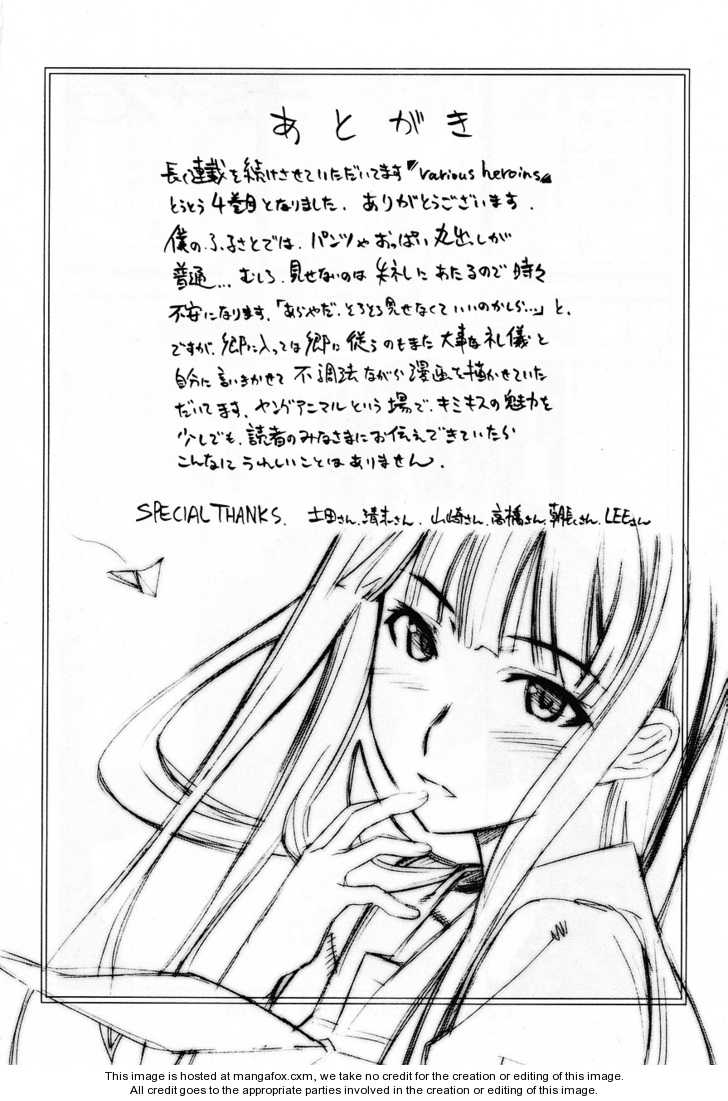 あとがき
長く連載を続けさせていただいてます『various heroins』
とうとう4巻目となりました。ありがとうございます。
僕のふるさとでは、パンツやおっぱい丸出しが
普通…むしろ、見せないのは失礼にあたるので時々
不安になります。「あらやだ、そろそろ見せなくていいのかしら…」と。
ですが、郷に入っては郷に従うのもまた大事な礼儀と
自分に言いきかせて不調法ながら漫画を描かせていた
だいてます。ヤングアニマルという場で、キミキスの魅力を
少しでも、読者のみなさまにお伝えできていたら
こんなにうれしいことはありません。
SPECIAL THANKS. 土田さん、清水さん、山崎さん、高橋さん、朝長さん、LEEさん
This image is hosted at mangafox.cxm, we take no credit for the creation or editing of this image.
All credit goes to the appropriate parties involved in the creation or editing of this image.